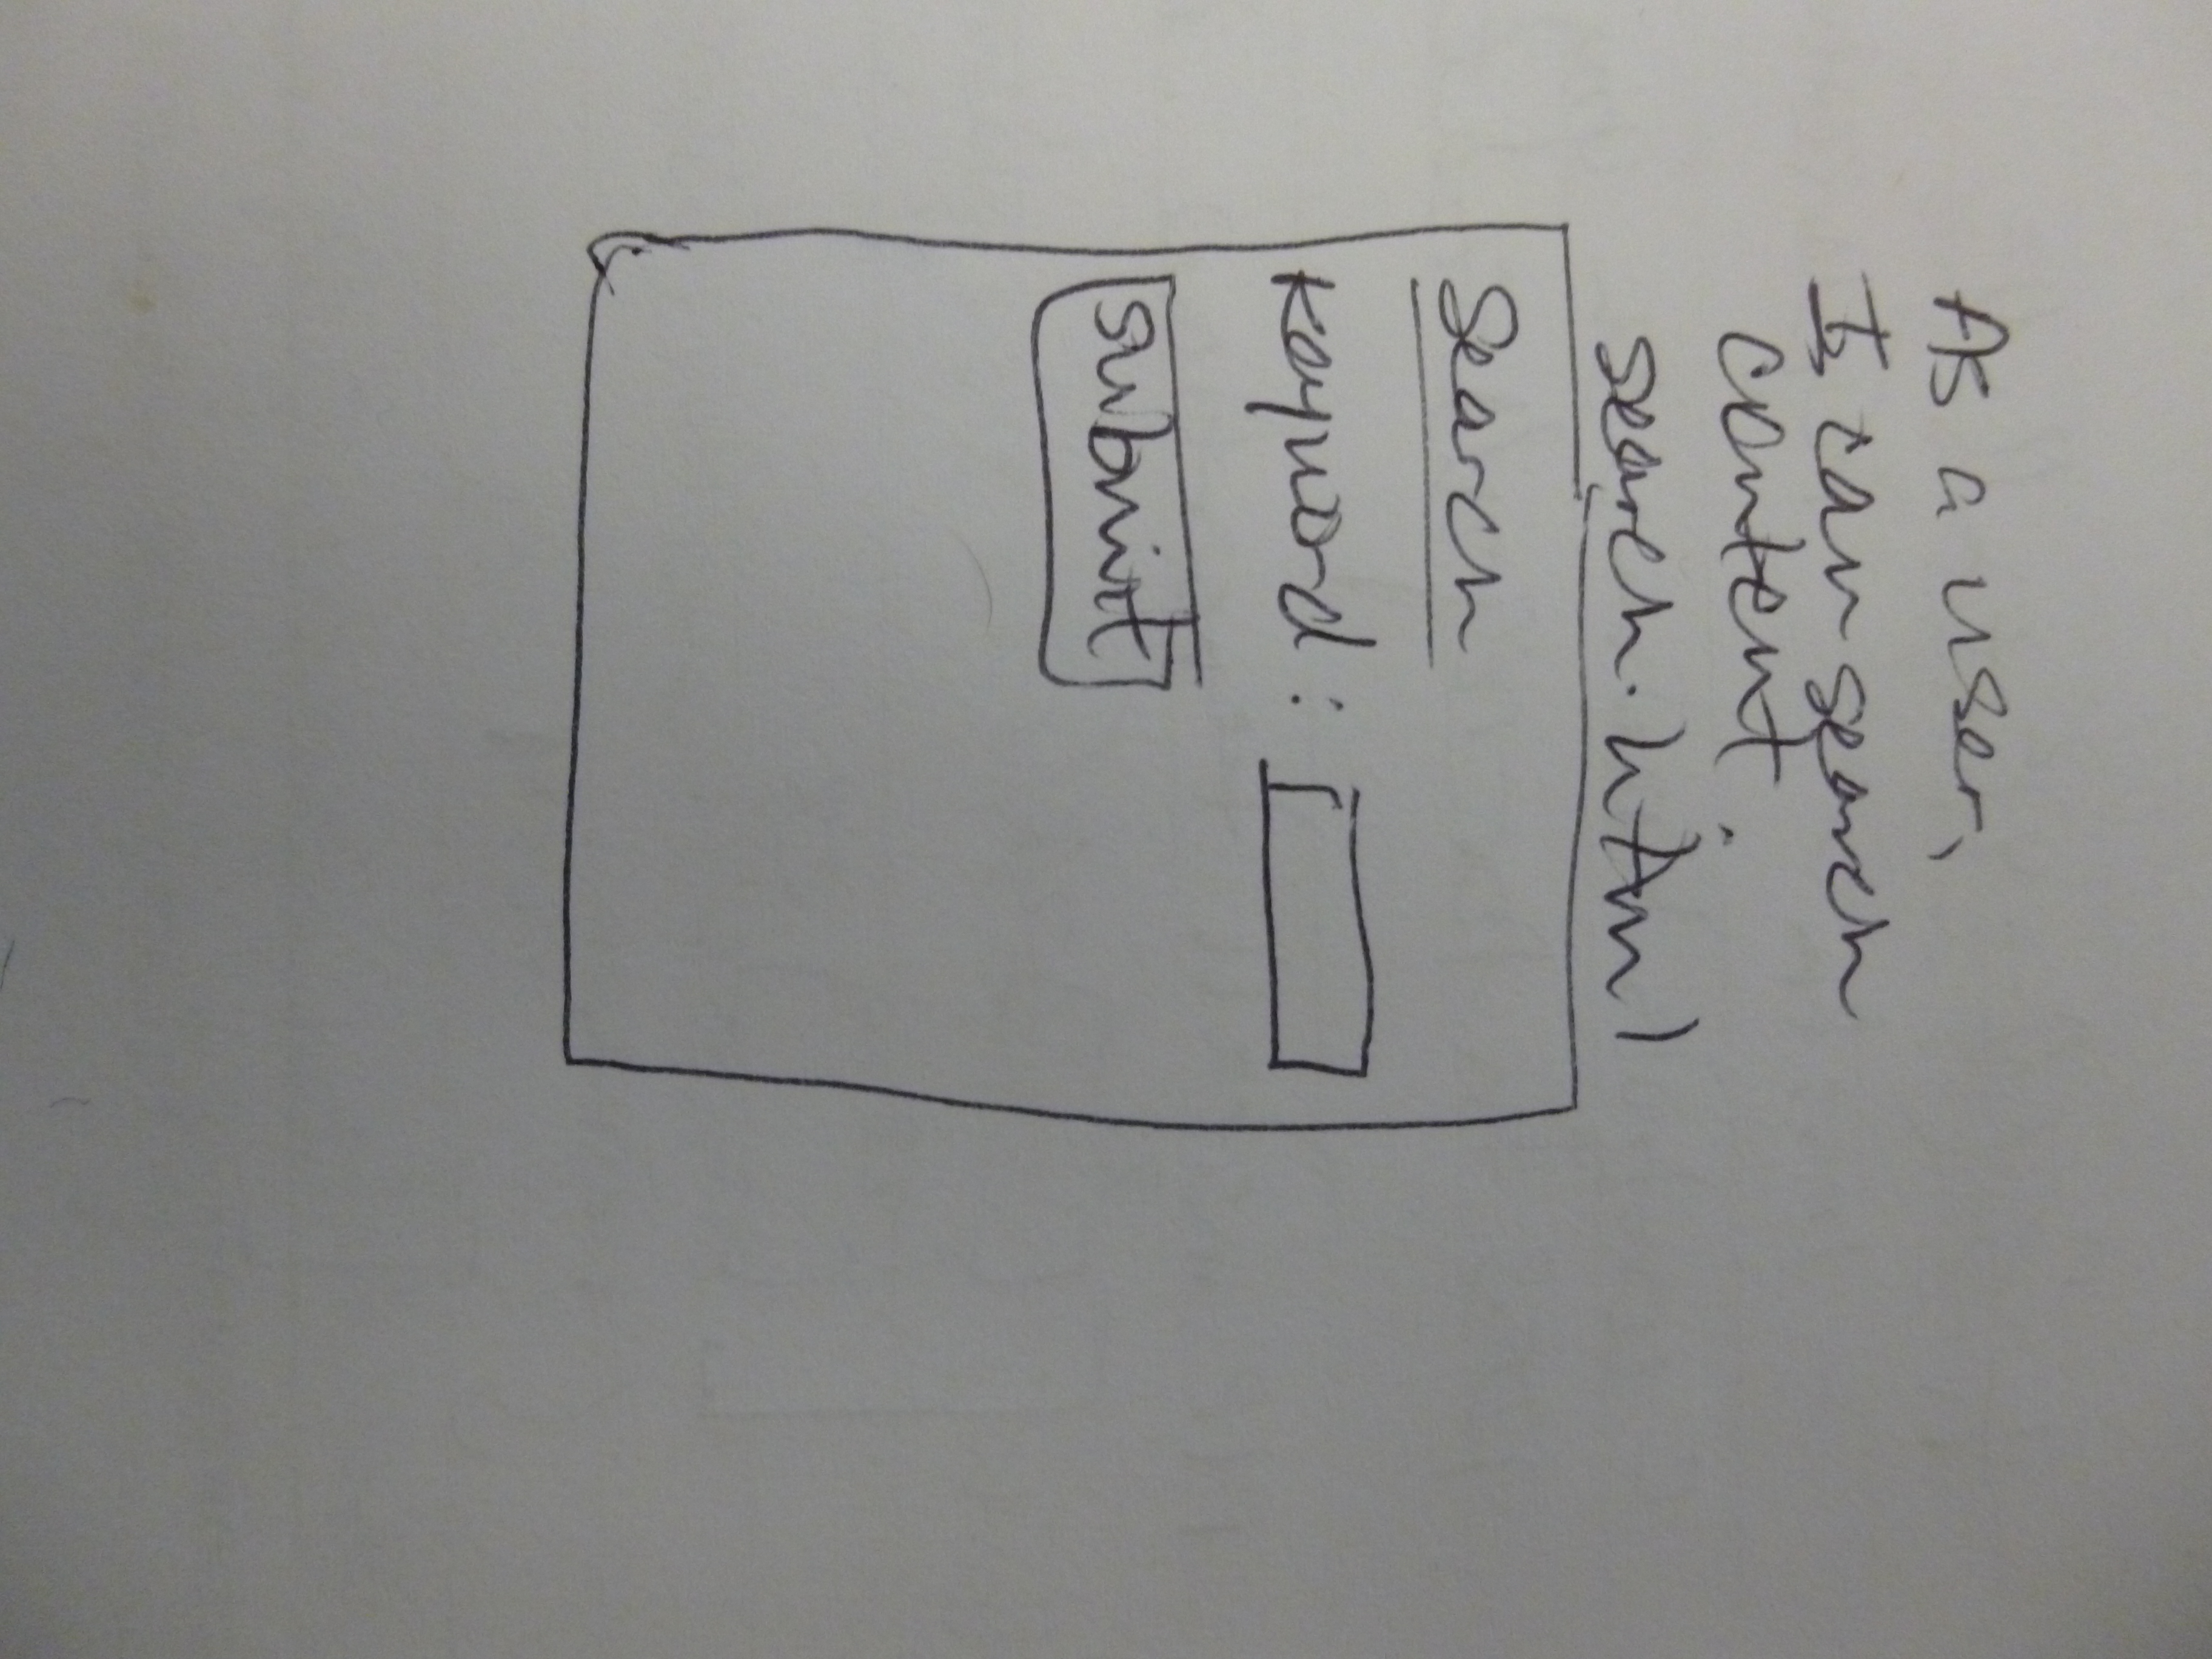 As a user,
I can search
content.
search.html
Search
Keyword:
submit